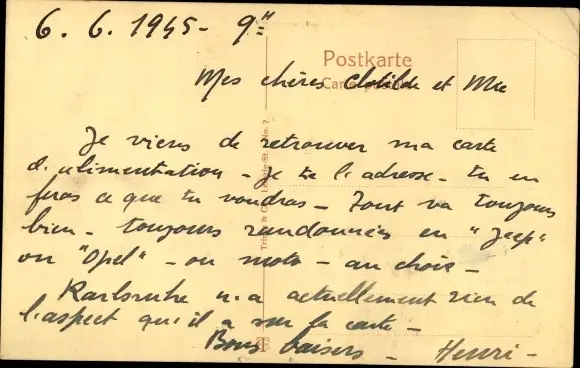 6. 6. 1945 - 9ʰ
Postkarte
Mes chères Clotilde et Mie
Je viens de retrouver ma carte
d'alimentation - Je te l'adresse - tu en
feras ce que tu voudras - Tout va toujours
bien - toujours randonnées en "Jeep"
ou "Opel" - ou moto - au choix -
Karlsruhe n'a actuellement rien de
l'aspect qu'il a sur la carte -
Bons baisers - Henri -